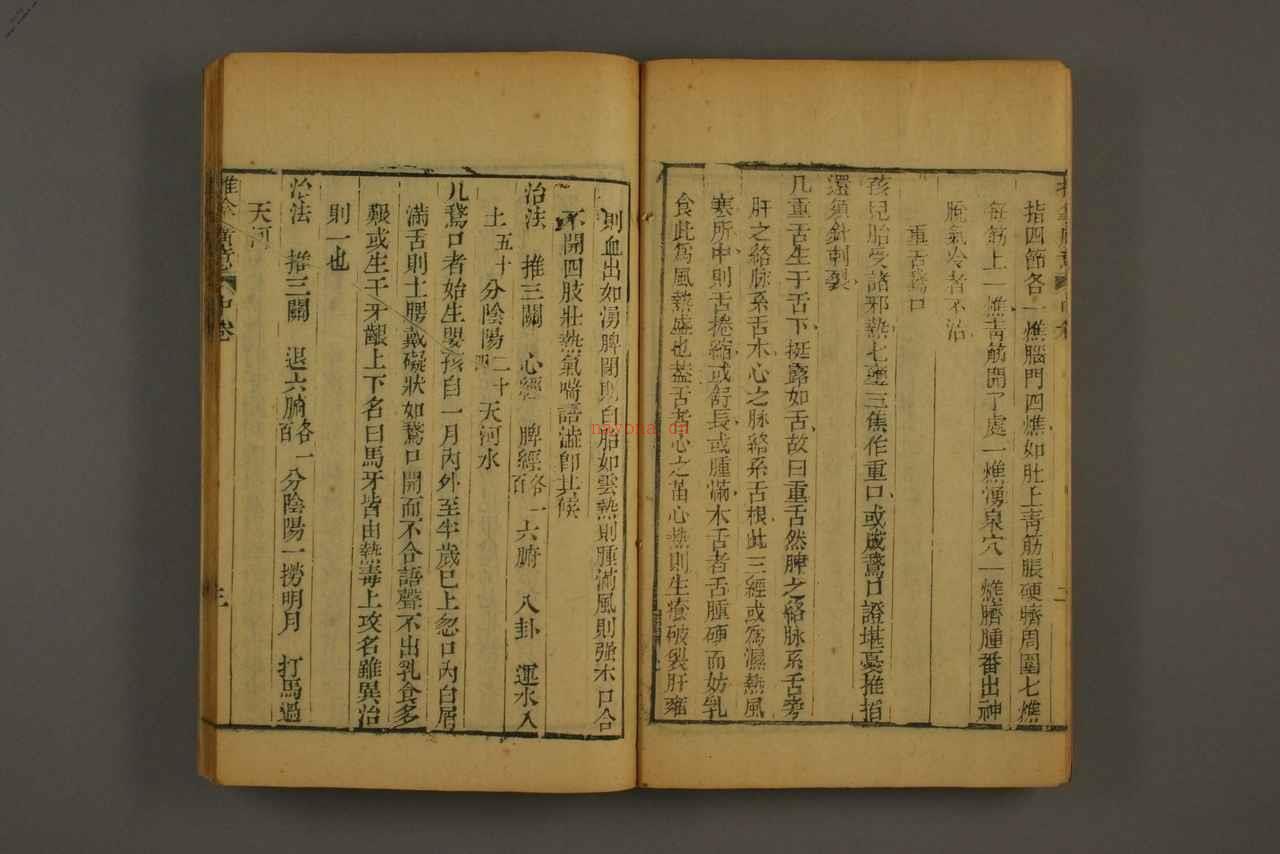 指四節各一燋腦門四燋如肚上青筋脹硬臍周圍七燋
每筋上一燋青筋開了處一燋湧泉穴一燋臍腫番出神
脫氣冷者不治
重舌鵞口
孩兒胎受諸邪熱七壅三焦作重口或成鵞口證堪憂推掐
還須針刺裂
凡重舌生于舌下挺露如舌故曰重舌然脾之絡脉系舌旁
肝之絡脉系舌木心之脉絡系舌根此三經或爲濕熱風
寒所中則舌捲縮或舒長或腫滿木舌者舌腫硬而妨乳
食此爲風熱盛也蓋舌者心之苗心熱則生瘡破裂肝壅
則血出如湧脾閉則白胎如雲熱則腫滿風則强木口合
不開四肢壯熱氣喘語澁卽其候
治法 推三關 心經 脾經各一百 六腑 八卦 運水入
土五十 分陰陽二十四 天河水
凡鵞口者始生嬰孩自一月內外至半歲已上忽口內白屑
滿舌則上腭戴礙狀如鵞口開而不合語聲不出乳食多
艱或生于牙齦上下名曰馬牙皆由熱毒上攻名雖異治
則一也
治法 推三關 退六腑各一百 分陰陽一撈明月 打馬過
天河
推拿廣意 中卷
三
nayona.cn